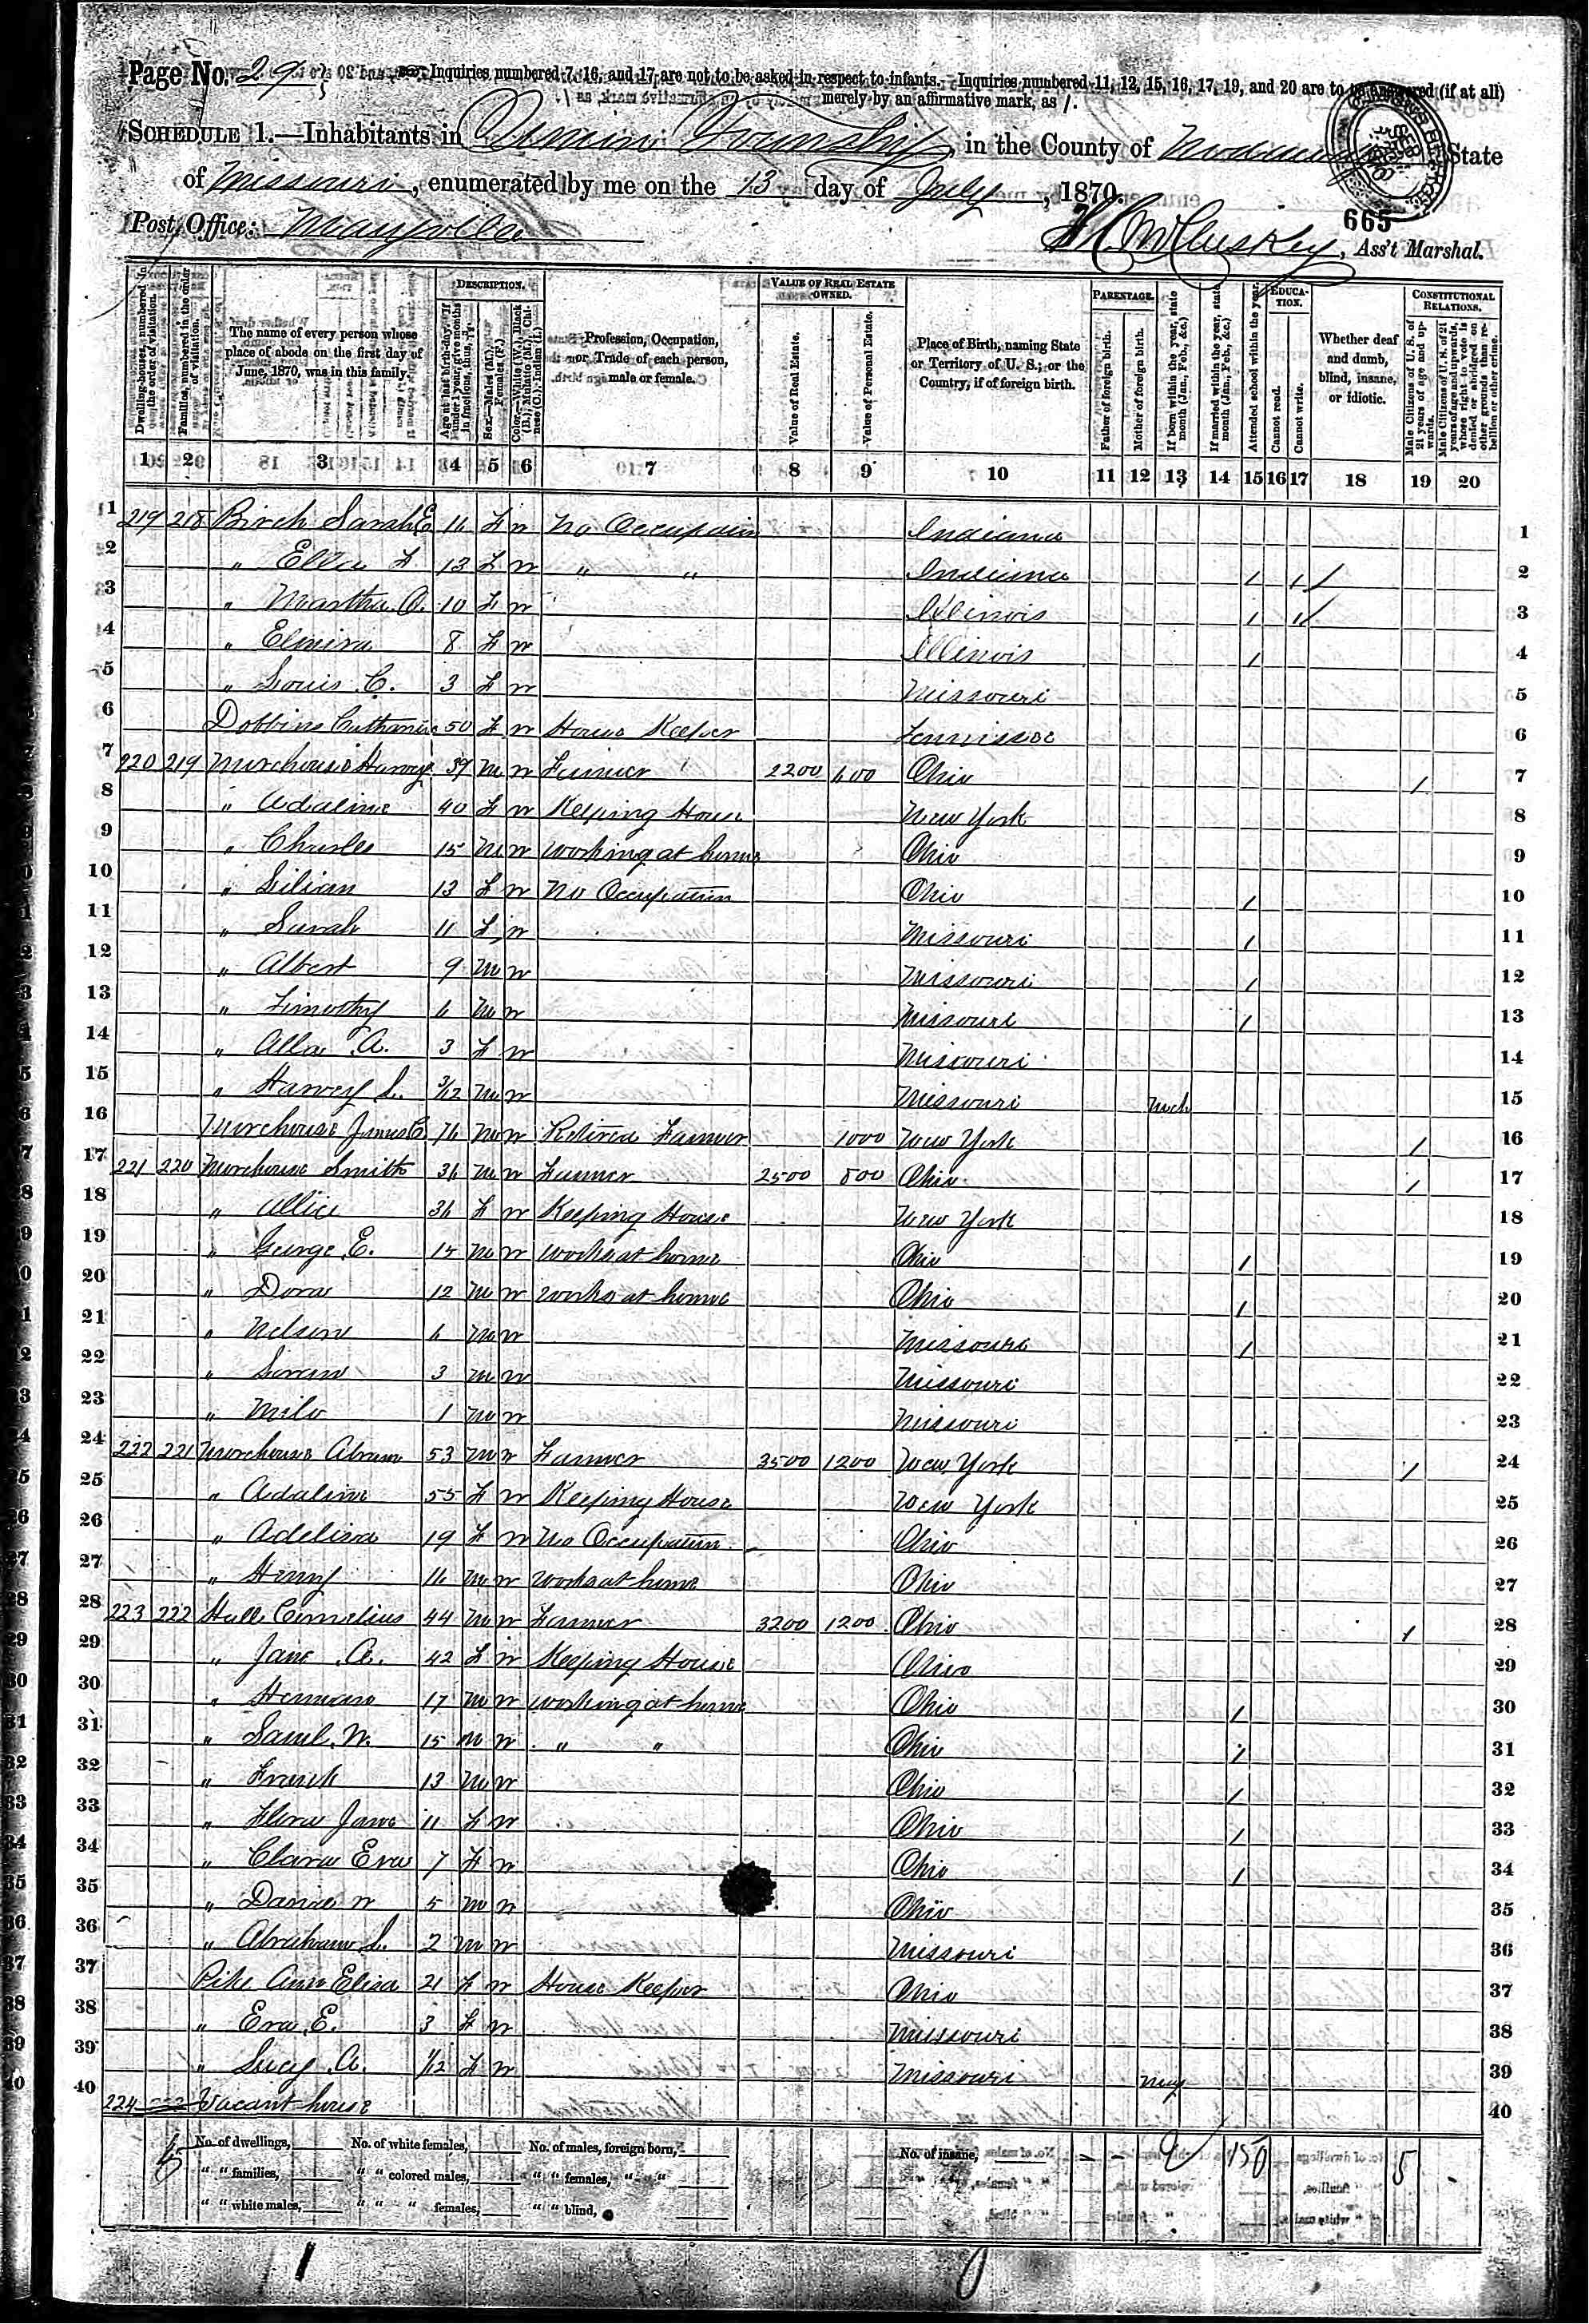 Page No. 29
Inquiries numbered 7, 16, and 17 are not to be asked in respect to infants. Inquiries numbered 11, 12, 15, 16, 17, 19, and 20 are to be answered (if at all)
merely by an affirmative mark, as /.
SCHEDULE 1.—Inhabitants in Union Township, in the County of Nodaway, State
of Missouri, enumerated by me on the 13 day of July, 1870.
665
Post Office: Maryville
McCluskey, Ass't Marshal.
DESCRIPTION.
VALUE OF REAL ESTATE OWNED.
PARENTAGE.
EDUCATION.
CONSTITUTIONAL RELATIONS.
Dwelling-houses, numbered in the order of visitation.
Families, numbered in the order of visitation.
The name of every person whose place of abode on the first day of June, 1870, was in this family.
Age at last birth-day. If under 1 year, give months in fractions, thus, 3/12.
Sex.—Males (M.), Females (F.)
Color.—White (W.), Black (B.), Mulatto (M.), Chinese (C.), Indian (I.)
Profession, Occupation, or Trade of each person, male or female.
Value of Real Estate.
Value of Personal Estate.
Place of Birth, naming State or Territory of U. S.; or the Country, if of foreign birth.
Father of foreign birth.
Mother of foreign birth.
If born within the year, state month (Jan., Feb., &c.)
If married within the year, state month (Jan., Feb., &c.)
Attended school within the year.
Cannot read.
Cannot write.
Whether deaf and dumb, blind, insane, or idiotic.
Male Citizens of U. S. of 21 years of age and upwards.
Male Citizens of U. S. of 21 years of age and upwards, whose right to vote is denied or abridged on other grounds than rebellion or other crime.
1 2 3 4 5 6 7 8 9 10 11 12 13 14 15 16 17 18 19 20
1 219 218 Birch Sarah E 16 F W No Occupation Indiana 1
2 " Ella F 13 F W " " Indiana / / / 2
3 " Martha A. 10 F W Illinois / / / 3
4 " Elmira 8 F W Illinois / 4
5 " Louis C. 3 F W Missouri 5
6 Dobbins 50 F W House Keeper Tennissee 6
7 220 219 Morehouse Harvey 39 M W Farmer 2200 600 Ohio / 7
8 " Adaline 40 F W Keeping House New York 8
9 " Charles 15 M W Working at home Ohio 9
10 " Lilian 13 F W No Occupation Ohio / 10
11 " Sarah 11 F W Missouri / 11
12 " Albert 9 M W Missouri / 12
13 " Timothy 6 M W Missouri / 13
14 " Alla A. 3 F W Missouri 14
15 " Harvey L. 3/12 M W Missouri Mch 15
16 Morehouse James C 76 M W Retired Farmer 1000 New York / 16
17 221 220 Morehouse Smith 36 M W Farmer 2500 800 Ohio / 17
18 " Allice 36 F W Keeping House New York 18
19 " George E. 15 M W Works at home Ohio / 19
20 " Dora 12 M W Works at home Ohio / 20
21 " Nelson 6 M W Missouri / 21
22 " Loran 3 M W Missouri 22
23 " Milo 1 M W Missouri 23
24 222 221 Morehouse Abram 53 M W Farmer 3500 1200 New York / 24
25 " Adaline 55 F W Keeping House New York 25
26 " Adelina 19 F W No Occupation Ohio 26
27 " Henry 16 M W Works at home Ohio 27
28 223 222 Hall Cornelius 44 M W Farmer 3200 1200 Ohio / 28
29 " Jane A. 42 F W Keeping House Ohio 29
30 " Herman 17 M W Working at home Ohio / 30
31 " Saml. W. 15 M W " " Ohio / 31
32 " Frank 13 M W Ohio / 32
33 " Flora Jane 11 F W Ohio / 33
34 " Clara Eva 7 F W Ohio / 34
35 " Daniel W 5 M W Ohio 35
36 " Abraham L. 2 M W Missouri 36
37 Pike Ann Eliza 21 F W House Keeper Ohio 37
38 " Eva E. 3 F W Missouri 38
39 " Lucy A. 1/12 F W Missouri May 39
40 224 Vacant house 40
No. of dwellings, No. of white females, No. of males, foreign born, No. of insane,
" " families, " " colored males, " " females, " "
" " white males, " " " females, " " blind,
5 2 15 0 5